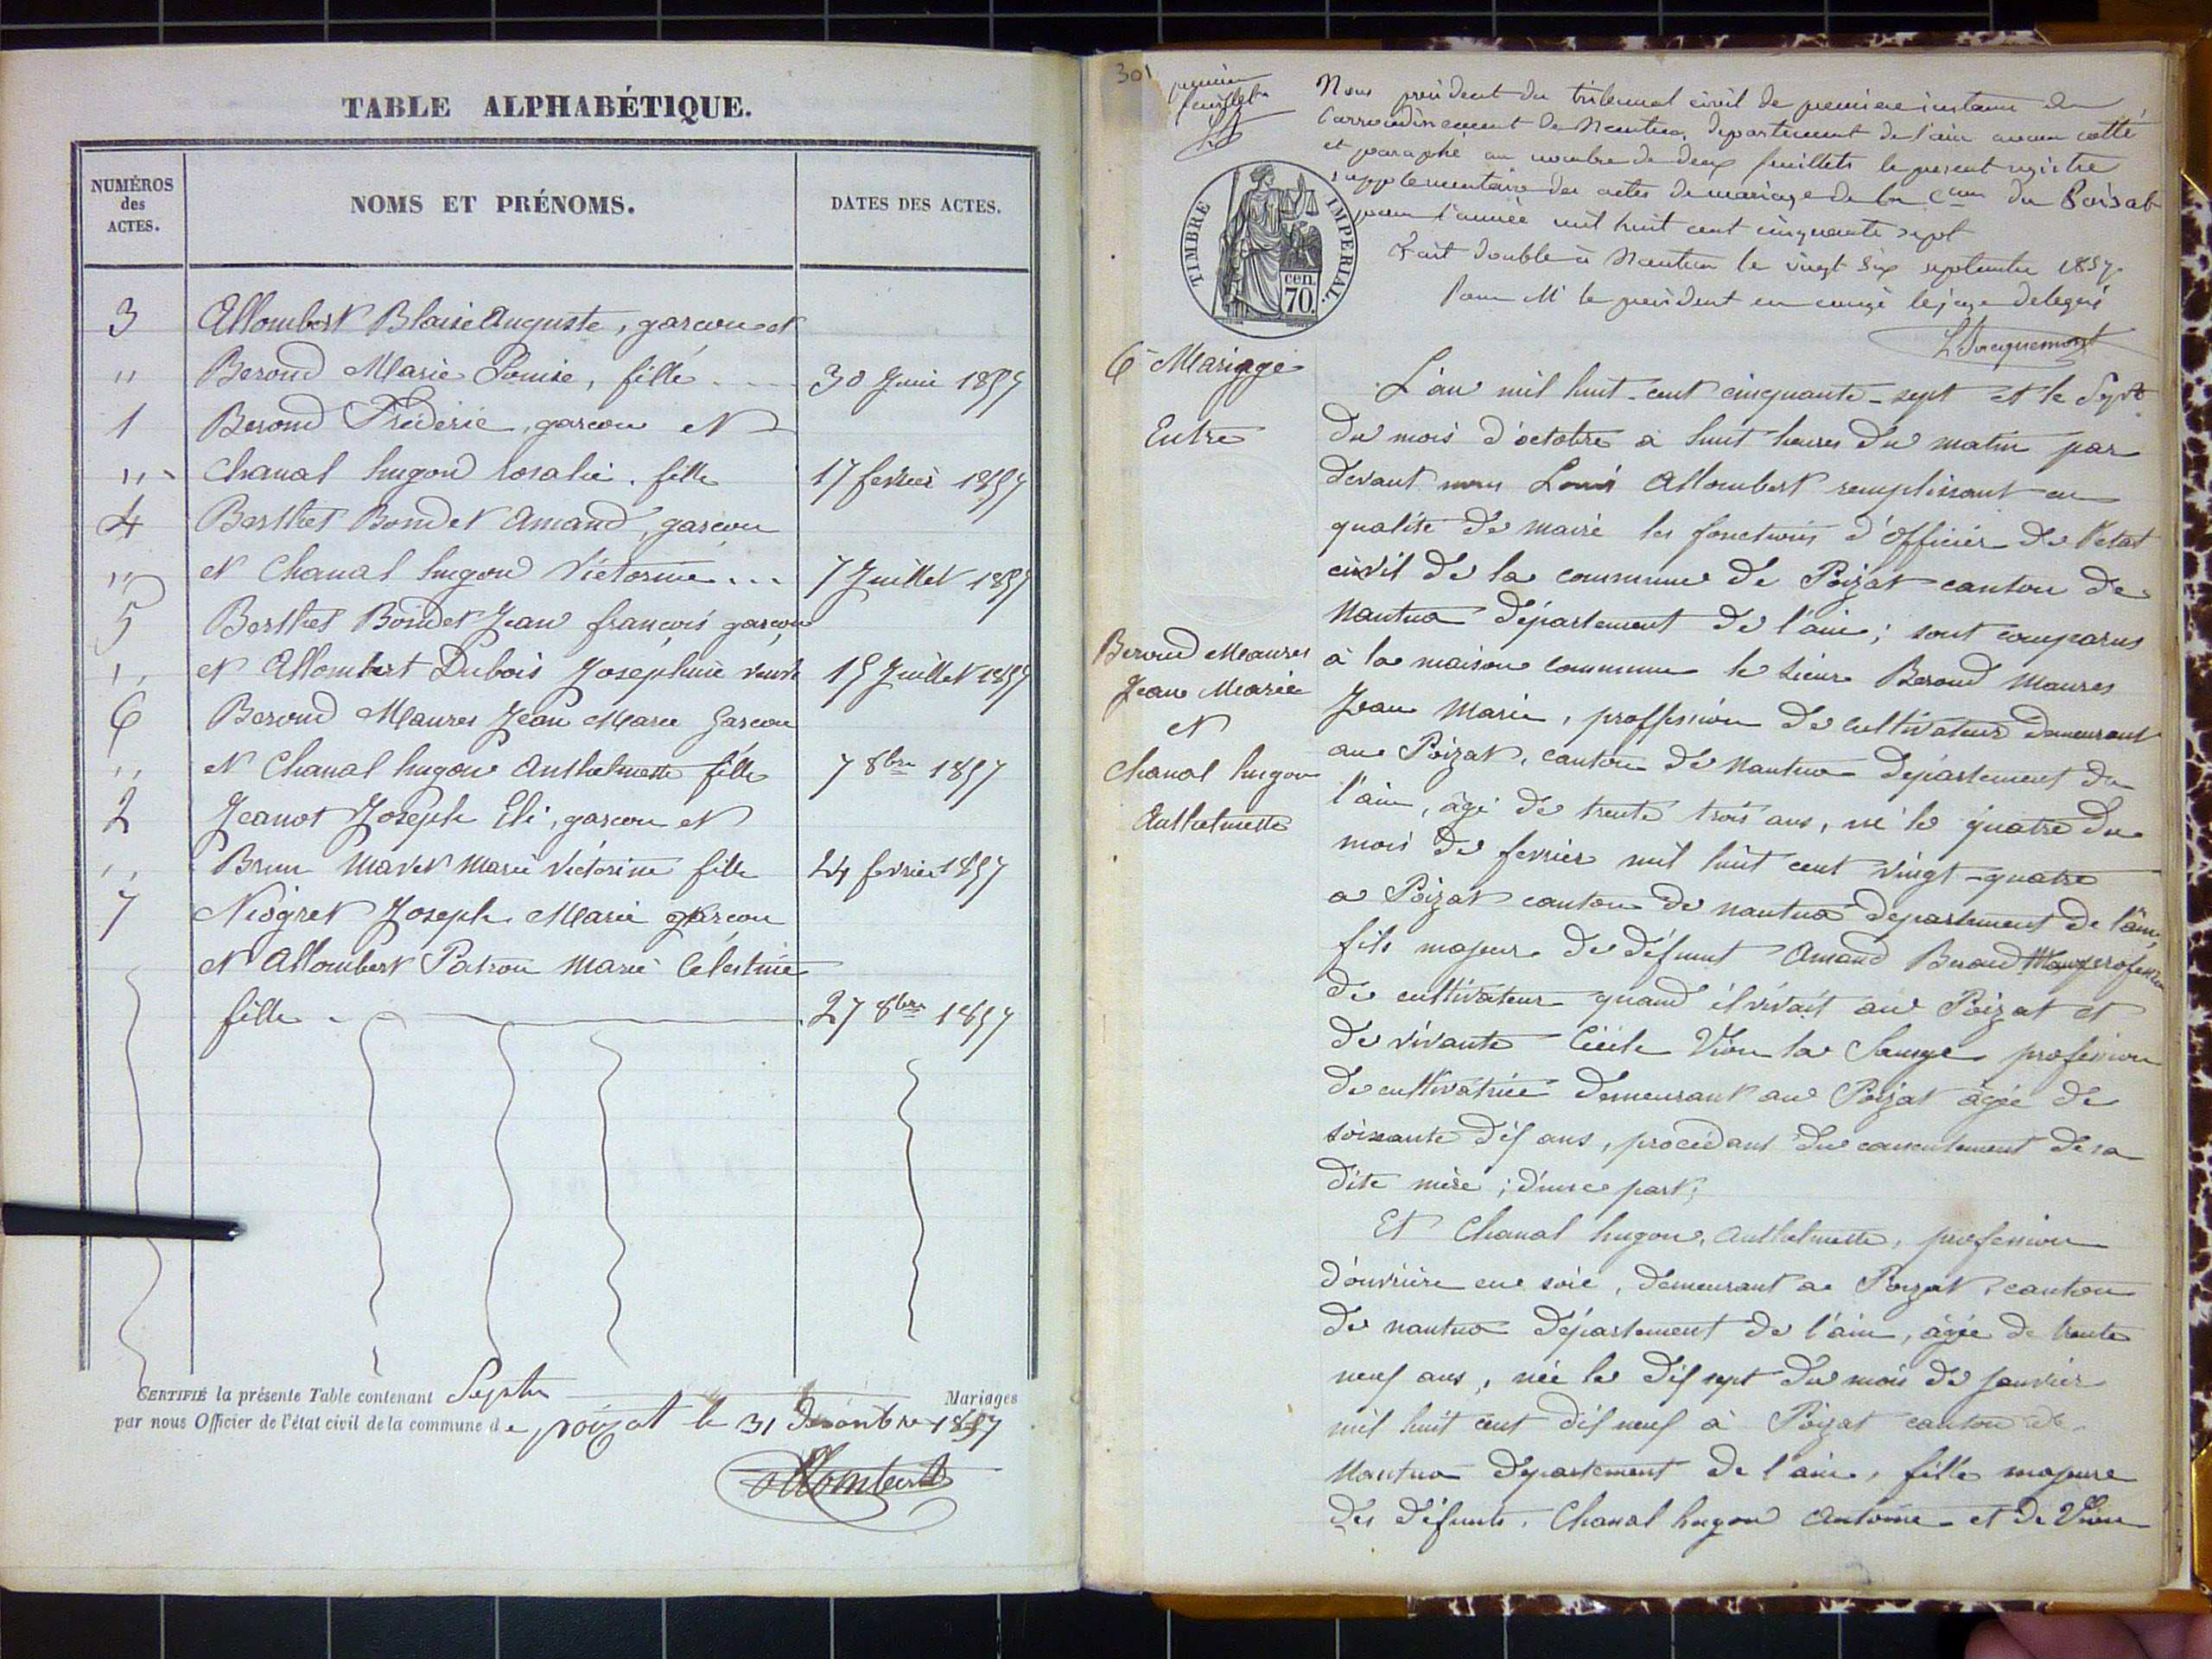 TABLE ALPHABÉTIQUE.
NUMÉROS des ACTES.
NOMS ET PRÉNOMS.
DATES DES ACTES.
3 Allombert Blaise Auguste, garcon et
" Beroud Marie Louise, fille 30 Juin 1857
1 Beroud Frédéric, garcon et
" Chanal hugon rosalie. fille 17 fevrier 1857
4 Berthet Bondet Amand, garcon
" et Chanal hugon Victorine... 7 Juillet 1857
5 Berthet Bondet Jean françois garcon
" et Allombert Dubois Joséphine veuve 15 Juillet 1857
6 Beroud Maures Jean Marie garcon
" et Chanal hugon Anthelmette fille 7 8bre 1857
2 Jeanot Joseph Eli, garcon et
" Brun Mavet Marie Victorine fille 24 fevrier 1857
7 Niogret Joseph Marie garcon
et Allombert Patron Marie Célestine
fille 27 8bre 1857
CERTIFIÉ la présente Table contenant Sept Mariages
par nous Officier de l'état civil de la commune de poizat le 31 Décembre 1857
Allombert
301
premier
feuillet
Nous président du tribunal civil de premiere instance de
l'arrondissement de Nantua, departement de l'ain avons cotté
et paraphé au nombre de deux feuillets le present registre
supplementaire des actes de mariage de la Cune du Poisat
pour l'année mil huit cent cinquante sept
Fait double à Nantua le vingt six septembre 1857
Pour Mr le president en congé le juge delegué
TIMBRE IMPERIAL.
cen.
70.
6e Mariage
Entre
Beroud Maures
Jean Marie
et
Chanal hugon
Anthelmette
L'an mil huit-cent cinquante-sept et le Sept
du mois d'octobre à huit heures du matin par
devant nous Louis Allombert remplissant en
qualité de maire les fonctions d'officier de l'etat
civil de la commune de Poizat canton de
Nantua département de l'ain; sont comparus
à la maison commune le sieur Beroud Maures
Jean Marie, proffession de cultivateur demeurant
au Poizat, canton de Nantua département de
l'ain, âgé de trente trois ans, né le quatre du
mois de fevrier mil huit cent vingt-quatre
a Poizat canton de nantua departement de l'ain,
fils majeur de défunt Amand Beroud profession
de cultivateur quand il vivait au Poizat et
de vivante Cécile Vion la Sauge profession
de cultivatrice demeurant au Poizat âgée de
soixante dix ans, procédant du consentement de sa
dite mère; d'une part;
Et Chanal hugon, Anthelmette, profession
d'ouvrière en soie, demeurant a Poizat, canton
de nantua département de l'ain, âgée de trente
neuf ans, née le dix sept du mois de janvier
mil huit cent dix neuf à Poizat canton de
Nantua departement de l'ain, fille majeure
des défunts, Chanal hugon Antoine et de Vion